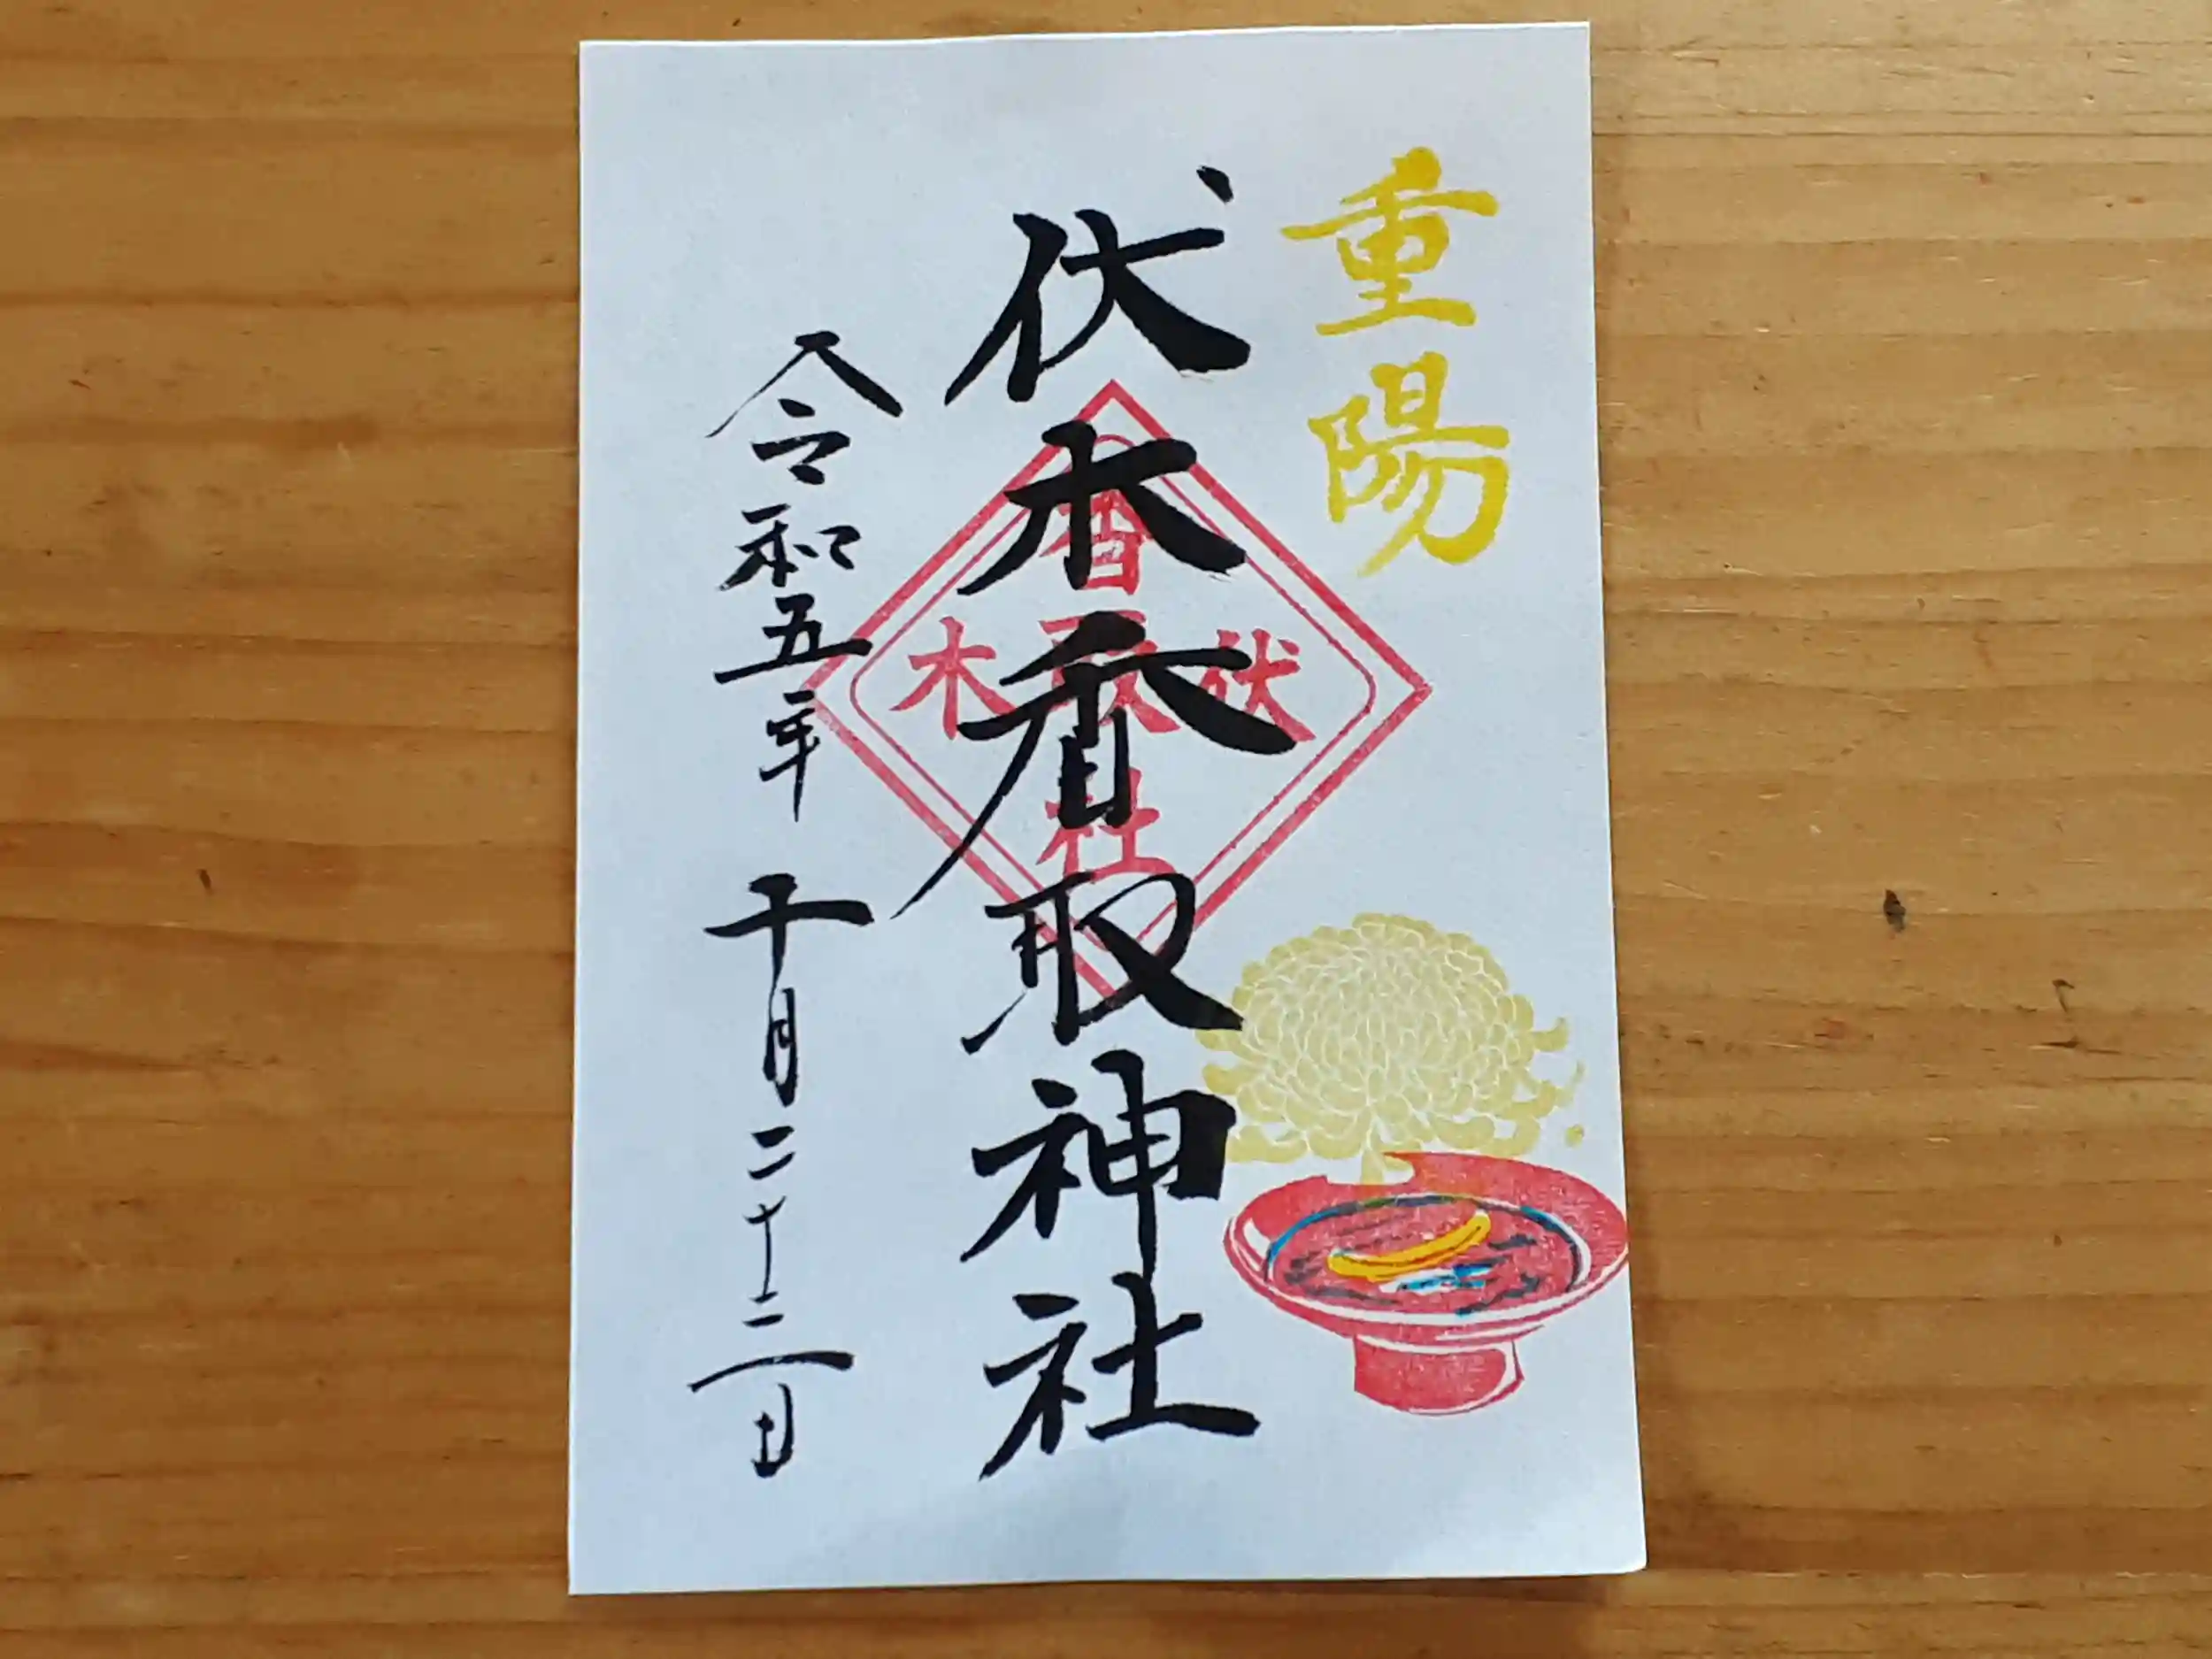 重陽
伏木香取神社
伏木
香取社
令和五年十月二十二日